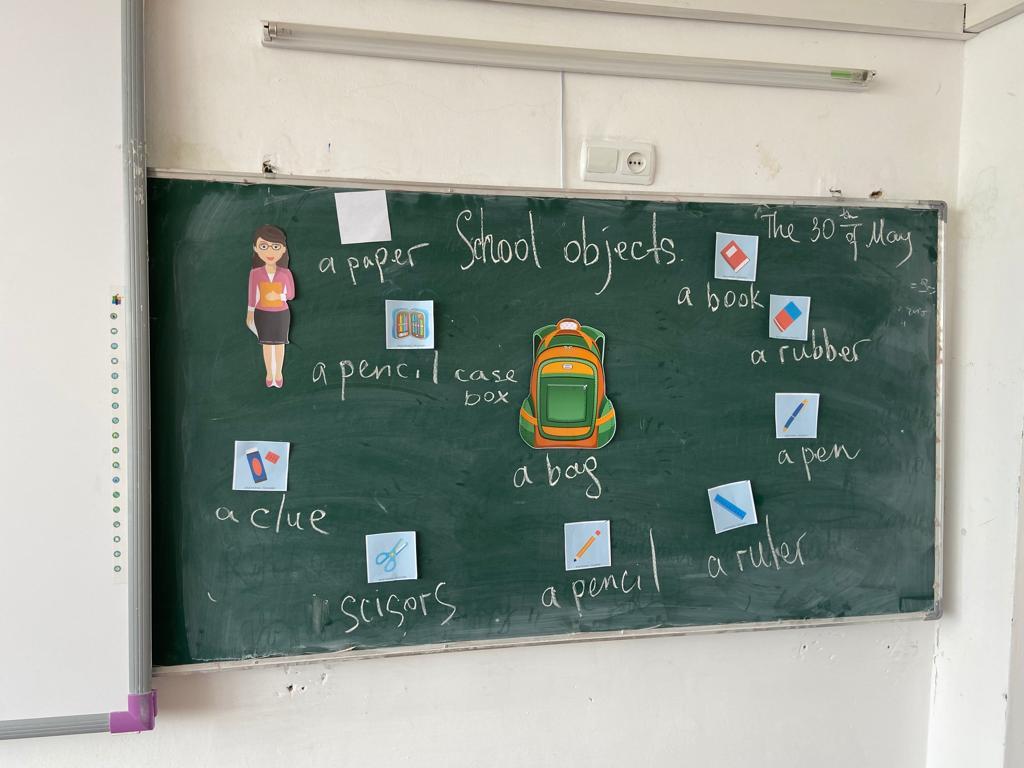 School objects.
The 30th of May
a paper
a book
a rubber
a pencil case
box
a pen
a bag
a clue
a ruler
scisors
a pencil